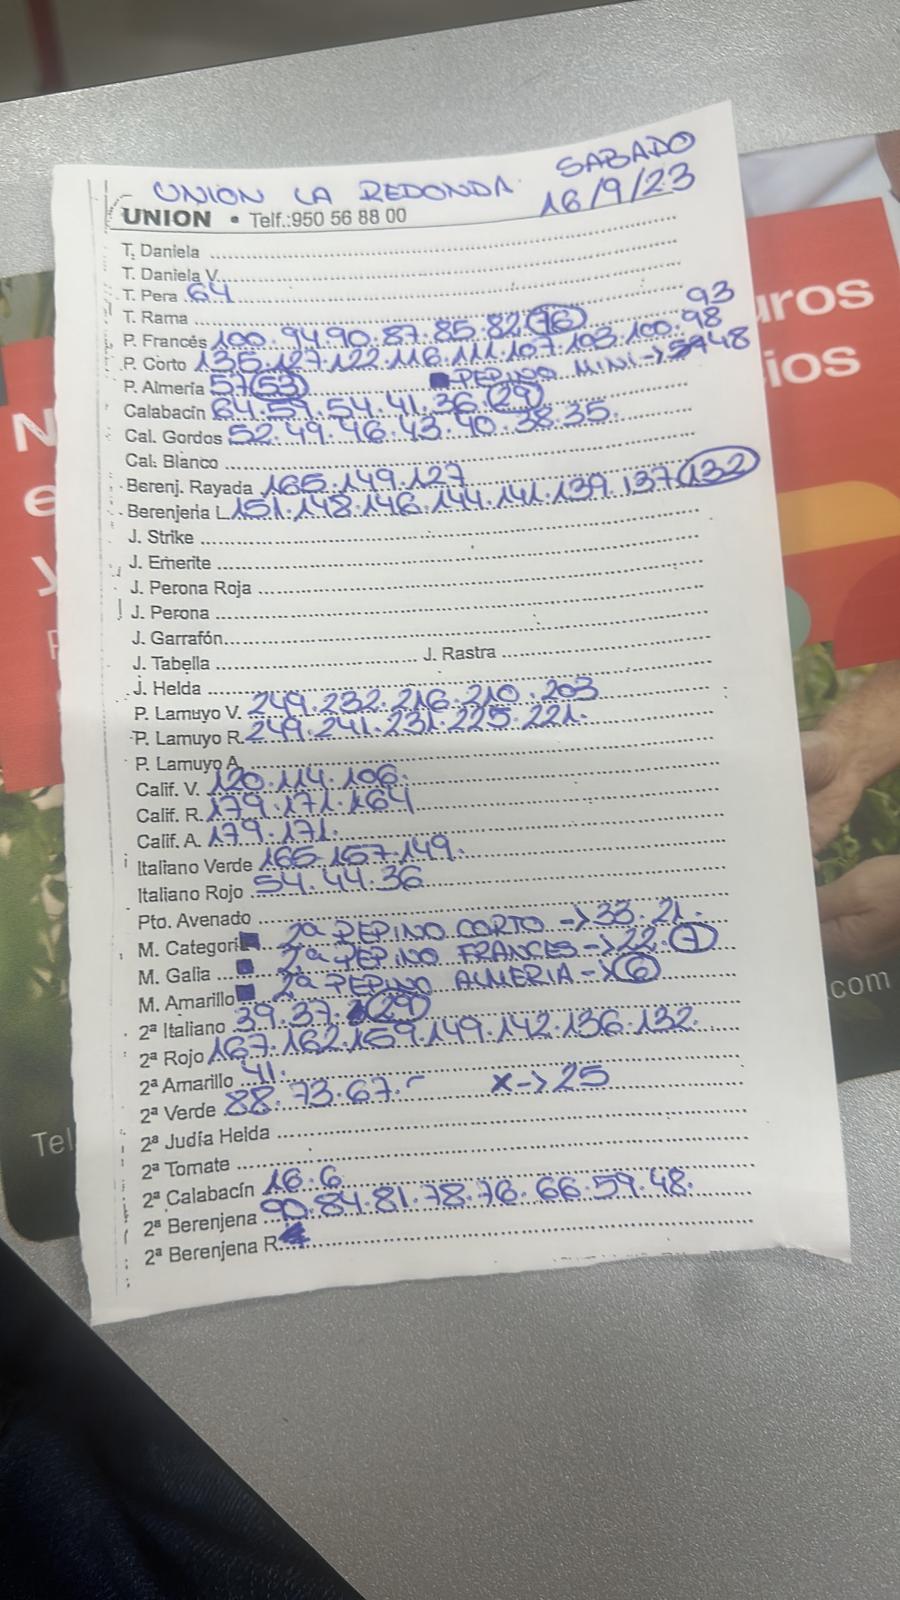 UNION LA REDONDA SABADO
16/9/23
UNION • Telf.:950 56 88 00
T. Daniela
T. Daniela V.
T. Pera 64
T. Rama
P. Francés 100.94.90.87.85.82.76
P. Corto 135.127.122.116.111.107.103.100.98 93
P. Almería 57.53 PEPINO MINI->59 48
Calabacín 64.59.54.41.36.29
Cal. Gordos 52.49.46.43.40.38.35.
Cal. Blanco
Berenj. Rayada 165.149.127
Berenjena L. 151.148.146.144.141.139.137.132
J. Strike
J. Emerite
J. Perona Roja
J. Perona
J. Garrafón
J. Tabella J. Rastra
J. Helda
P. Lamuyo V. 249.232.216.210.203
P. Lamuyo R. 249.241.231.225.221.
P. Lamuyo A.
Calif. V. 120.114.106.
Calif. R. 179.171.164
Calif. A. 179.171.
Italiano Verde 165.157.149.
Italiano Rojo 54.44.36
Pto. Avenado
M. Categori 2ª PEPINO CORTO ->33.21.
M. Galia 2ª PEPINO FRANCES->22.7
M. Amarillo 2ª PEPINO ALMERIA->6
2ª Italiano 39.37.29
2ª Rojo 167.162.159.149.142.136.132.
2ª Amarillo 41.
2ª Verde 88.73.67.- X->25
2ª Judía Helda
2ª Tomate
2ª Calabacín 16.6
2ª Berenjena 90.84.81.78.76.66.59.48.
2ª Berenjena R.
uros
ios
N
e
y
Tel
.com